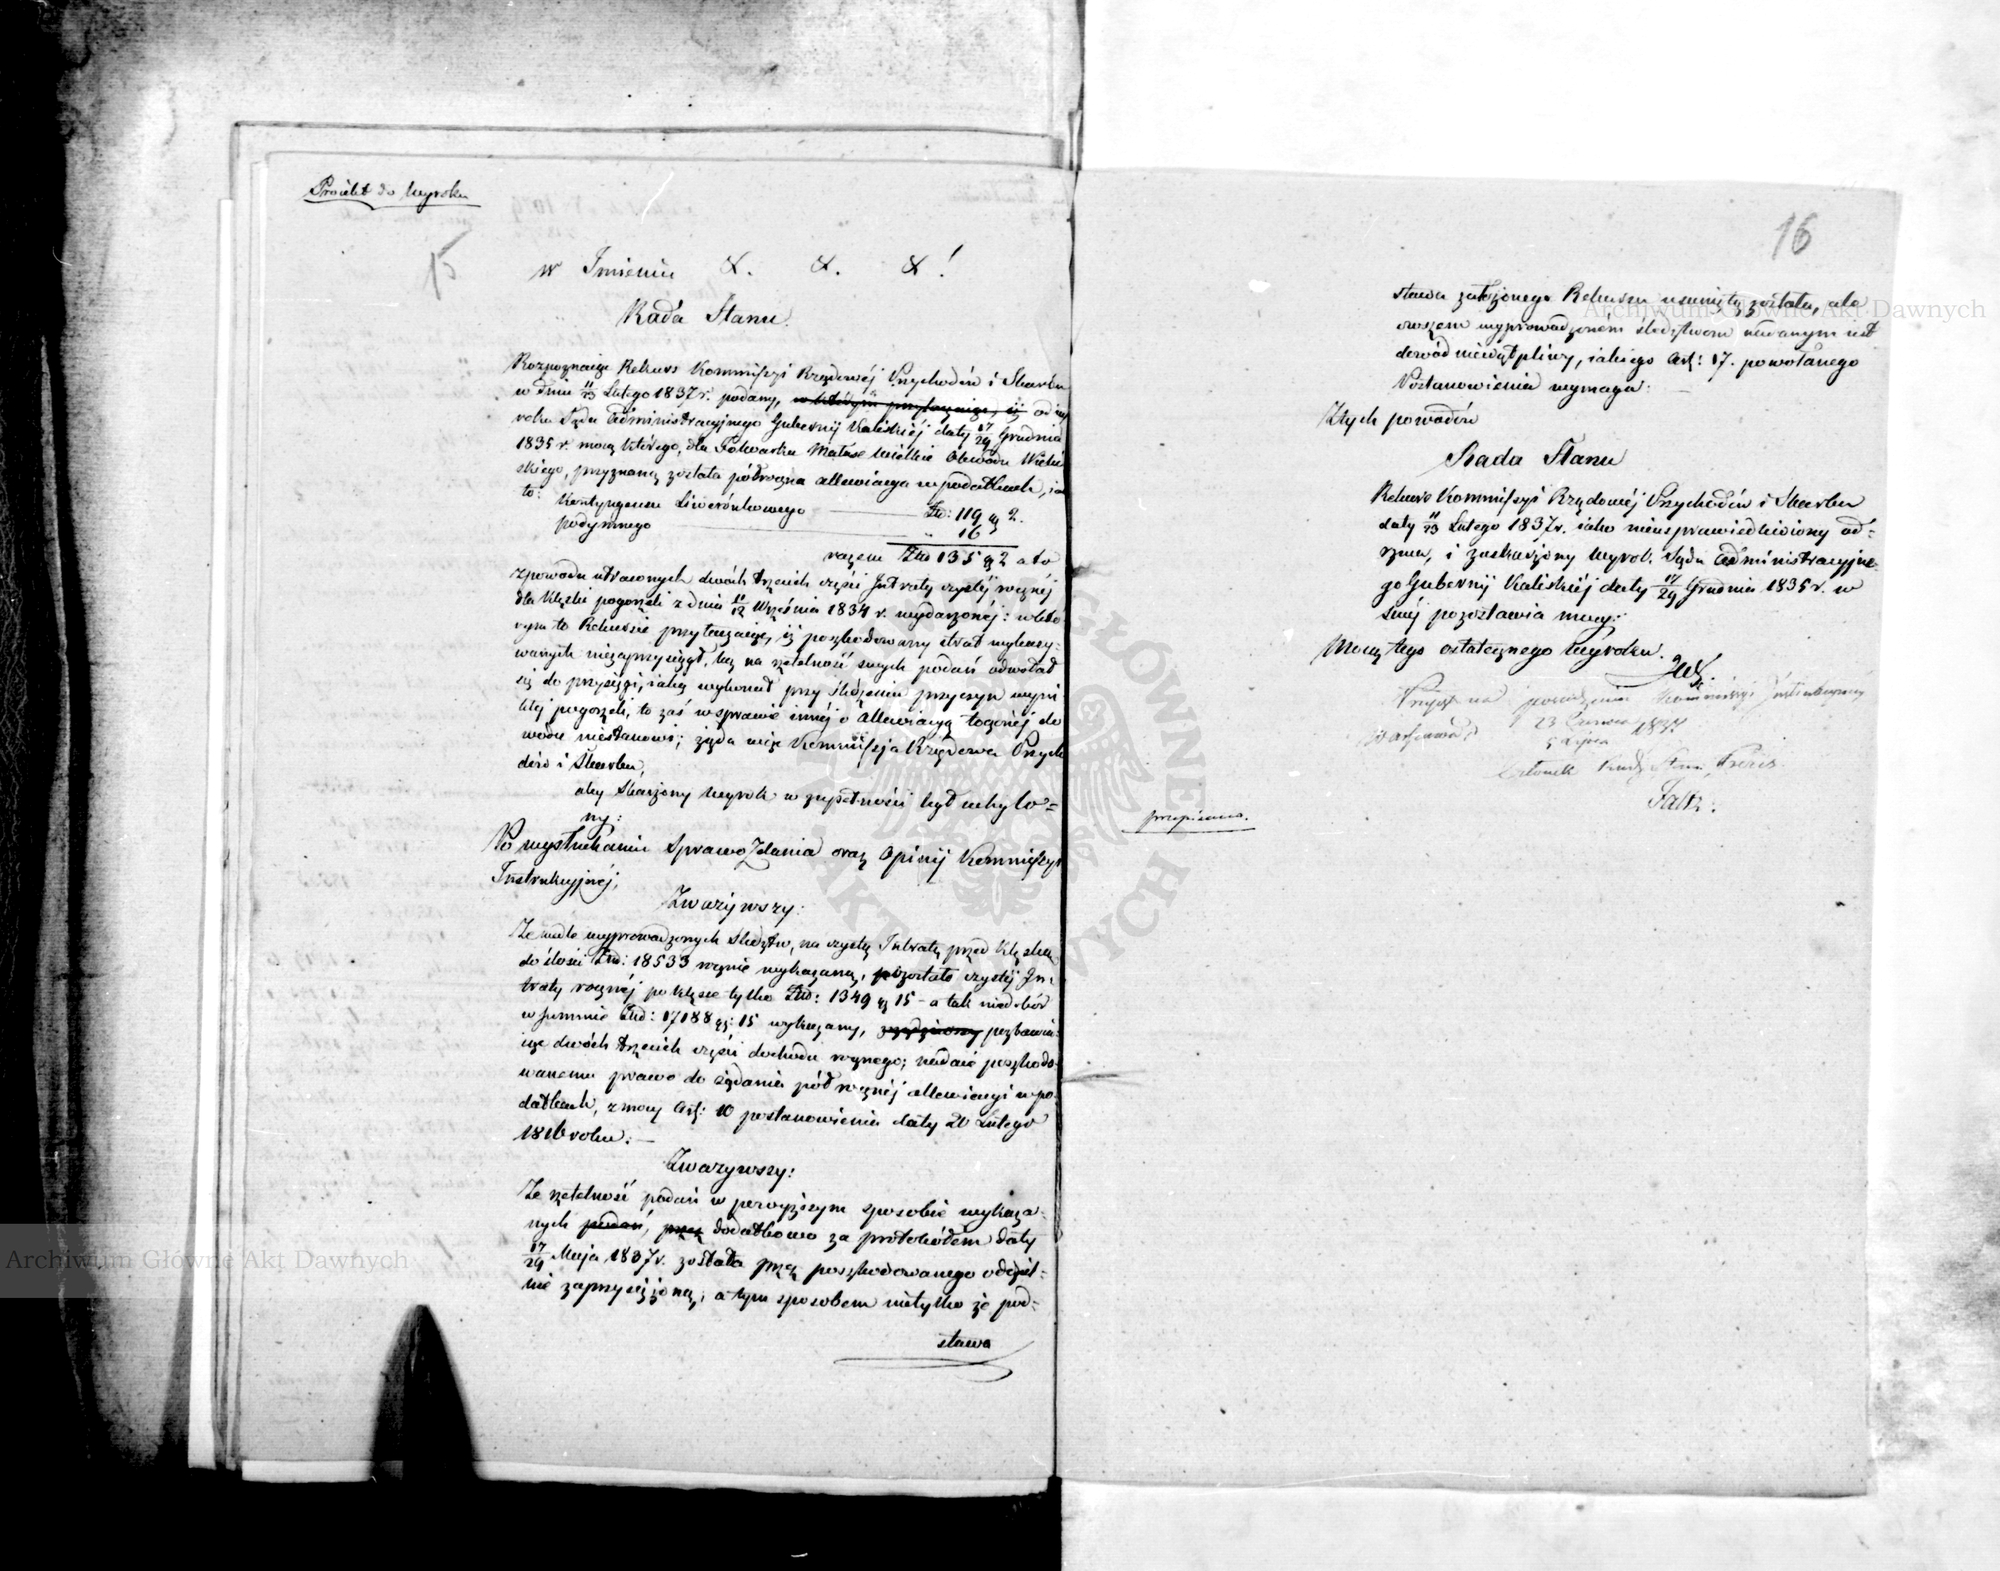 Proiekt do Wyroku
15
w Imieniu &. &. &!
Rada Stanu.
Rozpoznaiąc Rekurs Kommissyi Rządowéj Przychodów i Skarbu
w dniu 11/23 Lutego 1837 r. podany, w którym przytaczaiąc, iż od wy
roku Sądu Administracyjnego Gubernij Kaliskiéj daty 17/29 Grudnia
1835 r. mocą którego, dla Folwarku Mątase Wielkie Obwodu Wieluń
skiego, przyznaną została półroczna allewiacya w podatkach, iak
to: Kontyngensu Liwerónkowego Złp: 119 gr 2.
podymnego " 16
razem Złp 135 gr 2 a to
z powodu utraconych dwóch trzecich części Intraty czystéj rocznéj
dla klęski pogorzeli z dnia Września 1834 r. wydarzonéj: w któ
rym to Rekursie przytaczaiąc, iż poszkodowany strat wykazy-
wanych niezaprzysiągł, lecz na rzetelność swych podań odwołał
się do przysięgi, iaką wykonał przy śledzeniu przyczyn wyni
kłéj pogorzeli, to zaś w sprawie innéj o allewiacyą łegoż do
wodu niestanowi; żąda więc Kommissja Rządowa Przycho
dów i Skarbu,
aby skarżony Wyrok w zupełności był uchylo=
ny:
Po wysłuchaniu Sprawozdania oraz Opinij Kommissyi
Instrukcyjnéj,
Zważywszy:
Że wedle wyprowadzonych śledztw, na czystą Intratę przed klęską
do ilości Złp: 18533 rocznie wykazaną, pozostało czystéj In-
traty rocznéj po klęsce tylko Złp: 1349 gr 15 - a tak niedobór
w summie Złp: 17188 gr: 15 wykazany, pozbawia
iąc dwóch trzecich części dochodu rocznego; nadaie poszkodo-
wanemu prawo do żądania półrocznéj allewiacyi w po-
datkach, z mocy Art: 10 postanowienia daty 20 Lutego
1816 roku. —
Zważywszy:
Że rzetelność podań w powyższym sposobie wykaza-
nych podań, przez dodatkowo za protokółem daty
17/29 Maja 1837 r. została przez poszkodowanego oddziel=
nie zaprzysiężoną, a tym sposobem nietylko że pod=
stawa
16
stawa założonego Rekursu usuniętą została, ale
owszem wyprowadzoném śledztwem uważanym iest
dowód niewątpliwy, iakiego Art: 17. powołanego
Postanowienia wymaga: —
Z tych powodów
Rada Stanu
Rekurs Kommissyi Rządowéj Przychodów i Skarbu
daty 11/23 Lutego 1837 r. iako nieusprawiedliwiony od=
rzuca, i zaskarżony Wyrok Sądu Administracyjne-
go Gubernij Kaliskiéj daty 17/29 Grudnia 1835 r. w
swéj pozostawia mocy.
Mocą tego ostatecznego Wyroku.
Przyjęt na posiedzeniu Kommissyi Instrukcyjnej
Warszawa d 23 Czerwca / 5 Lipca 1837
Członek Rady Stanu, Prezes
przepisano.